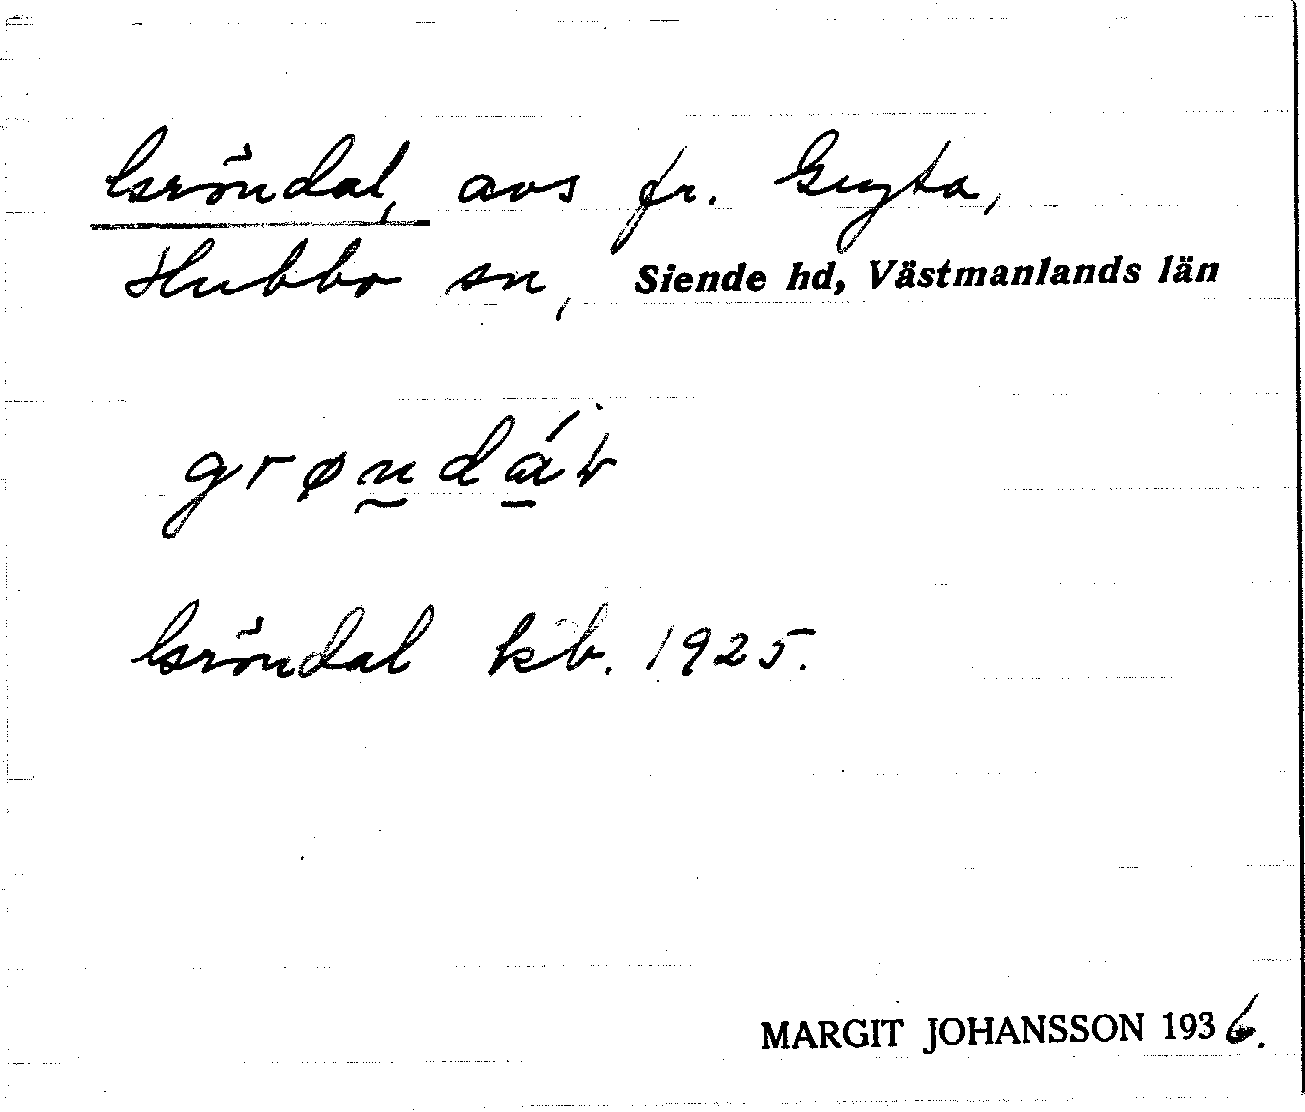 Gröndal, avs fr. Gryta,
Hubbo sn, Siende hd, Västmanlands län
grøn̰dá̱ɫ
Gröndal kb. 1925.
MARGIT JOHANSSON 1936.